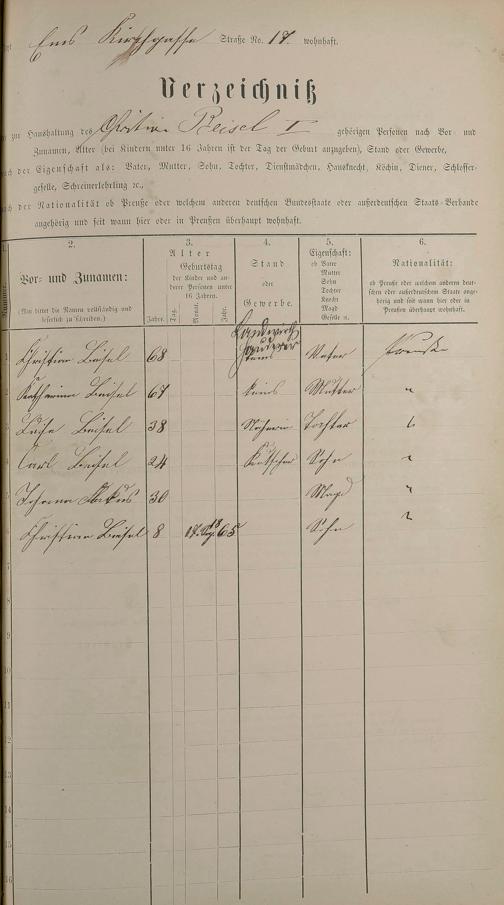 Ems Kirchgasse Straße No. 17. wohnhaft.
Verzeichniß
zur Haushaltung des Christian Beisel II gehörigen Personen nach Vor- und
Zunamen, Alter (bei Kindern unter 16 Jahren ist der Tag der Geburt anzugeben), Stand oder Gewerbe,
nach der Eigenschaft als: Vater, Mutter, Sohn, Tochter, Dienstmädchen, Hausknecht, Köchin, Diener, Schlosser-
geselle, Schreinerlehrling ꝛc.,
nach der Nationalität ob Preuße oder welchem anderen deutschen Bundesstaate oder außerdeutschen Staats-Verbande
angehörig und seit wann hier oder in Preußen überhaupt wohnhaft.
2. 3. 4. 5. 6.
Vor- und Zunamen:
(Man bittet die Namen vollständig und
leserlich zu schreiben.)
Alter
Geburtstag
der Kinder und an-
derer Personen unter
16 Jahren.
Jahre. Tag. Monat. Jahr.
Stand
oder
Gewerbe.
Eigenschaft:
ob Vater
Mutter
Sohn
Tochter
Knecht
Magd
Geselle u.
Nationalität:
ob Preuße oder welchem anderen deut-
schen oder außerdeutschen Staate ange-
hörig und seit wann hier oder in
Preußen überhaupt wohnhaft.
Christian Beisel 68 Vater Preuße
Katharina Beisel 67 keins Mutter "
Beisel 38 Näherin Tochter "
Carl Beisel 24 Kutscher Sohn "
Johanna 30 Magd "
Christian Beisel 8 18 65 Sohn "
7
8
9
10
11
12
13
14
15
16